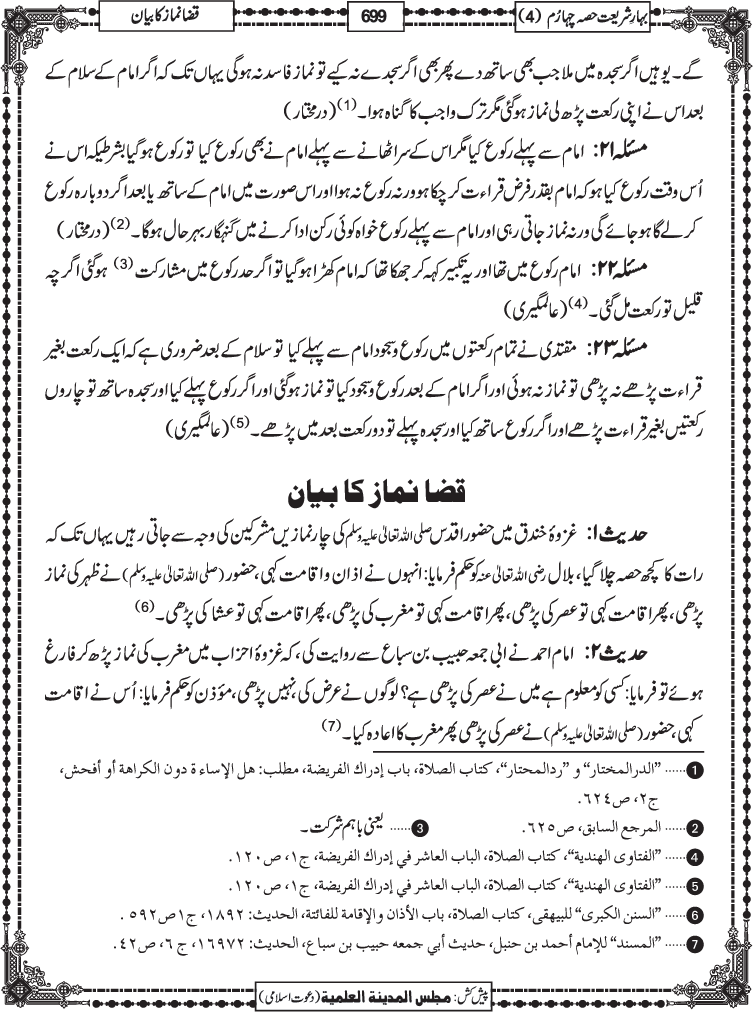 بہارِ شریعت حصہ چہارم (4)
699
قضا نماز کا بیان
گے۔ یوہیں اگر سجدہ میں ملا جب بھی ساتھ دے پھر بھی اگر سجدے نہ کیے تو نماز فاسد نہ ہوگی یہاں تک کہ اگر امام کے سلام کے
بعد اس نے اپنی رکعت پڑھ لی نماز ہوگئی مگر ترک واجب کا گناہ ہوا۔ (1) (درمختار)
مسئلہ ۲۱: امام سے پہلے رکوع کیا مگر اس کے سر اٹھانے سے پہلے امام نے بھی رکوع کیا تو رکوع ہوگیا بشرطیکہ اس نے
اُس وقت رکوع کیا ہو کہ امام بقدر فرض قراءت کر چکا ہو ورنہ رکوع نہ ہوا اور اس صورت میں امام کے ساتھ یا بعد اگر دوبارہ رکوع
کرلے گا ہو جائے گی ورنہ نماز جاتی رہی اور امام سے پہلے رکوع خواہ کوئی رکن ادا کرنے میں گنہگار بہرحال ہوگا۔ (2) (درمختار)
مسئلہ ۲۲: امام رکوع میں تھا اور یہ تکبیر کہہ کر جھکا تھا کہ امام کھڑا ہوگیا تو اگر حدِ رکوع میں مشارکت (3) ہوگئی اگرچہ
قلیل تو رکعت مل گئی۔ (4) (عالمگیری)
مسئلہ ۲۳: مقتدی نے تمام رکعتوں میں رکوع و سجود امام سے پہلے کیا تو سلام کے بعد ضروری ہے کہ ایک رکعت بغیر
قراءت پڑھے نہ پڑھی تو نماز نہ ہوئی اور اگر امام کے بعد رکوع و سجود کیا تو نماز ہوگئی اور اگر رکوع پہلے کیا اور سجدہ ساتھ تو چاروں
رکعتیں بغیر قراءت پڑھے اور اگر رکوع ساتھ کیا اور سجدہ پہلے تو دو رکعت بعد میں پڑھے۔ (5) (عالمگیری)
قضا نماز کا بیان
حدیث ۱: غزوۂ خندق میں حضور اقدس صلی اللہ تعالیٰ علیہ وسلم کی چار نمازیں مشرکین کی وجہ سے جاتی رہیں یہاں تک کہ
رات کا کچھ حصہ چلا گیا، بلال رضی اللہ تعالیٰ عنہ کو حکم فرمایا: انہوں نے اذان و اقامت کہی، حضور (صلی اللہ تعالیٰ علیہ وسلم) نے ظہر کی نماز
پڑھی، پھر اقامت کہی تو عصر کی پڑھی، پھر اقامت کہی تو مغرب کی پڑھی، پھر اقامت کہی تو عشا کی پڑھی۔ (6)
حدیث ۲: امام احمد نے ابی جمعہ حبیب بن سباع سے روایت کی، کہ غزوۂ احزاب میں مغرب کی نماز پڑھ کر فارغ
ہوئے تو فرمایا: کسی کو معلوم ہے میں نے عصر کی پڑھی ہے؟ لوگوں نے عرض کی، نہیں پڑھی، مؤذن کو حکم فرمایا: اُس نے اقامت
کہی، حضور (صلی اللہ تعالیٰ علیہ وسلم) نے عصر کی پڑھی پھر مغرب کا اعادہ کیا۔ (7)
1 ...... "الدرالمختار" و "ردالمحتار"، كتاب الصلاة، باب إدراك الفريضة، مطلب: هل الإساءة دون الكراهة أو أفحش،
ج٢، ص٦٢٤.
2 ...... المرجع السابق، ص٦٢٥. 3 ...... یعنی باہم شرکت۔
4 ...... "الفتاوى الهندية"، كتاب الصلاة، الباب العاشر في إدراك الفريضة، ج١، ص١٢٠.
5 ...... "الفتاوى الهندية"، كتاب الصلاة، الباب العاشر في إدراك الفريضة، ج١، ص١٢٠.
6 ...... "السنن الكبرى" للبيهقى، كتاب الصلاة، باب الأذان والإقامة للفائتة، الحديث: ١٨٩٢، ج١ص٥٩٢ .
7 ...... "المسند" للإمام أحمد بن حنبل، حديث أبي جمعه حبيب بن سباع، الحديث: ١٦٩٧٢، ج ٦، ص٤٢.
پیش کش: مجلس المدینۃ العلمیۃ (دعوت اسلامی)